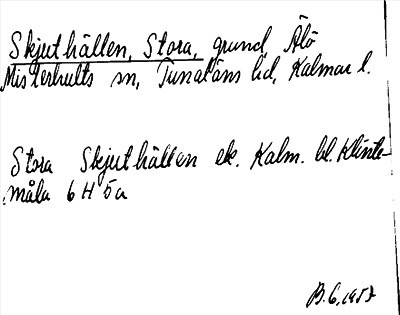 Skjuthällen, Stora, grund, Älö
Misterhults sn, Tunaläns hd, Kalmar l.
Stora Skjuthällen ek. Kalm. bl. Klinte-
måla 6 H 5a
B.G. 1957